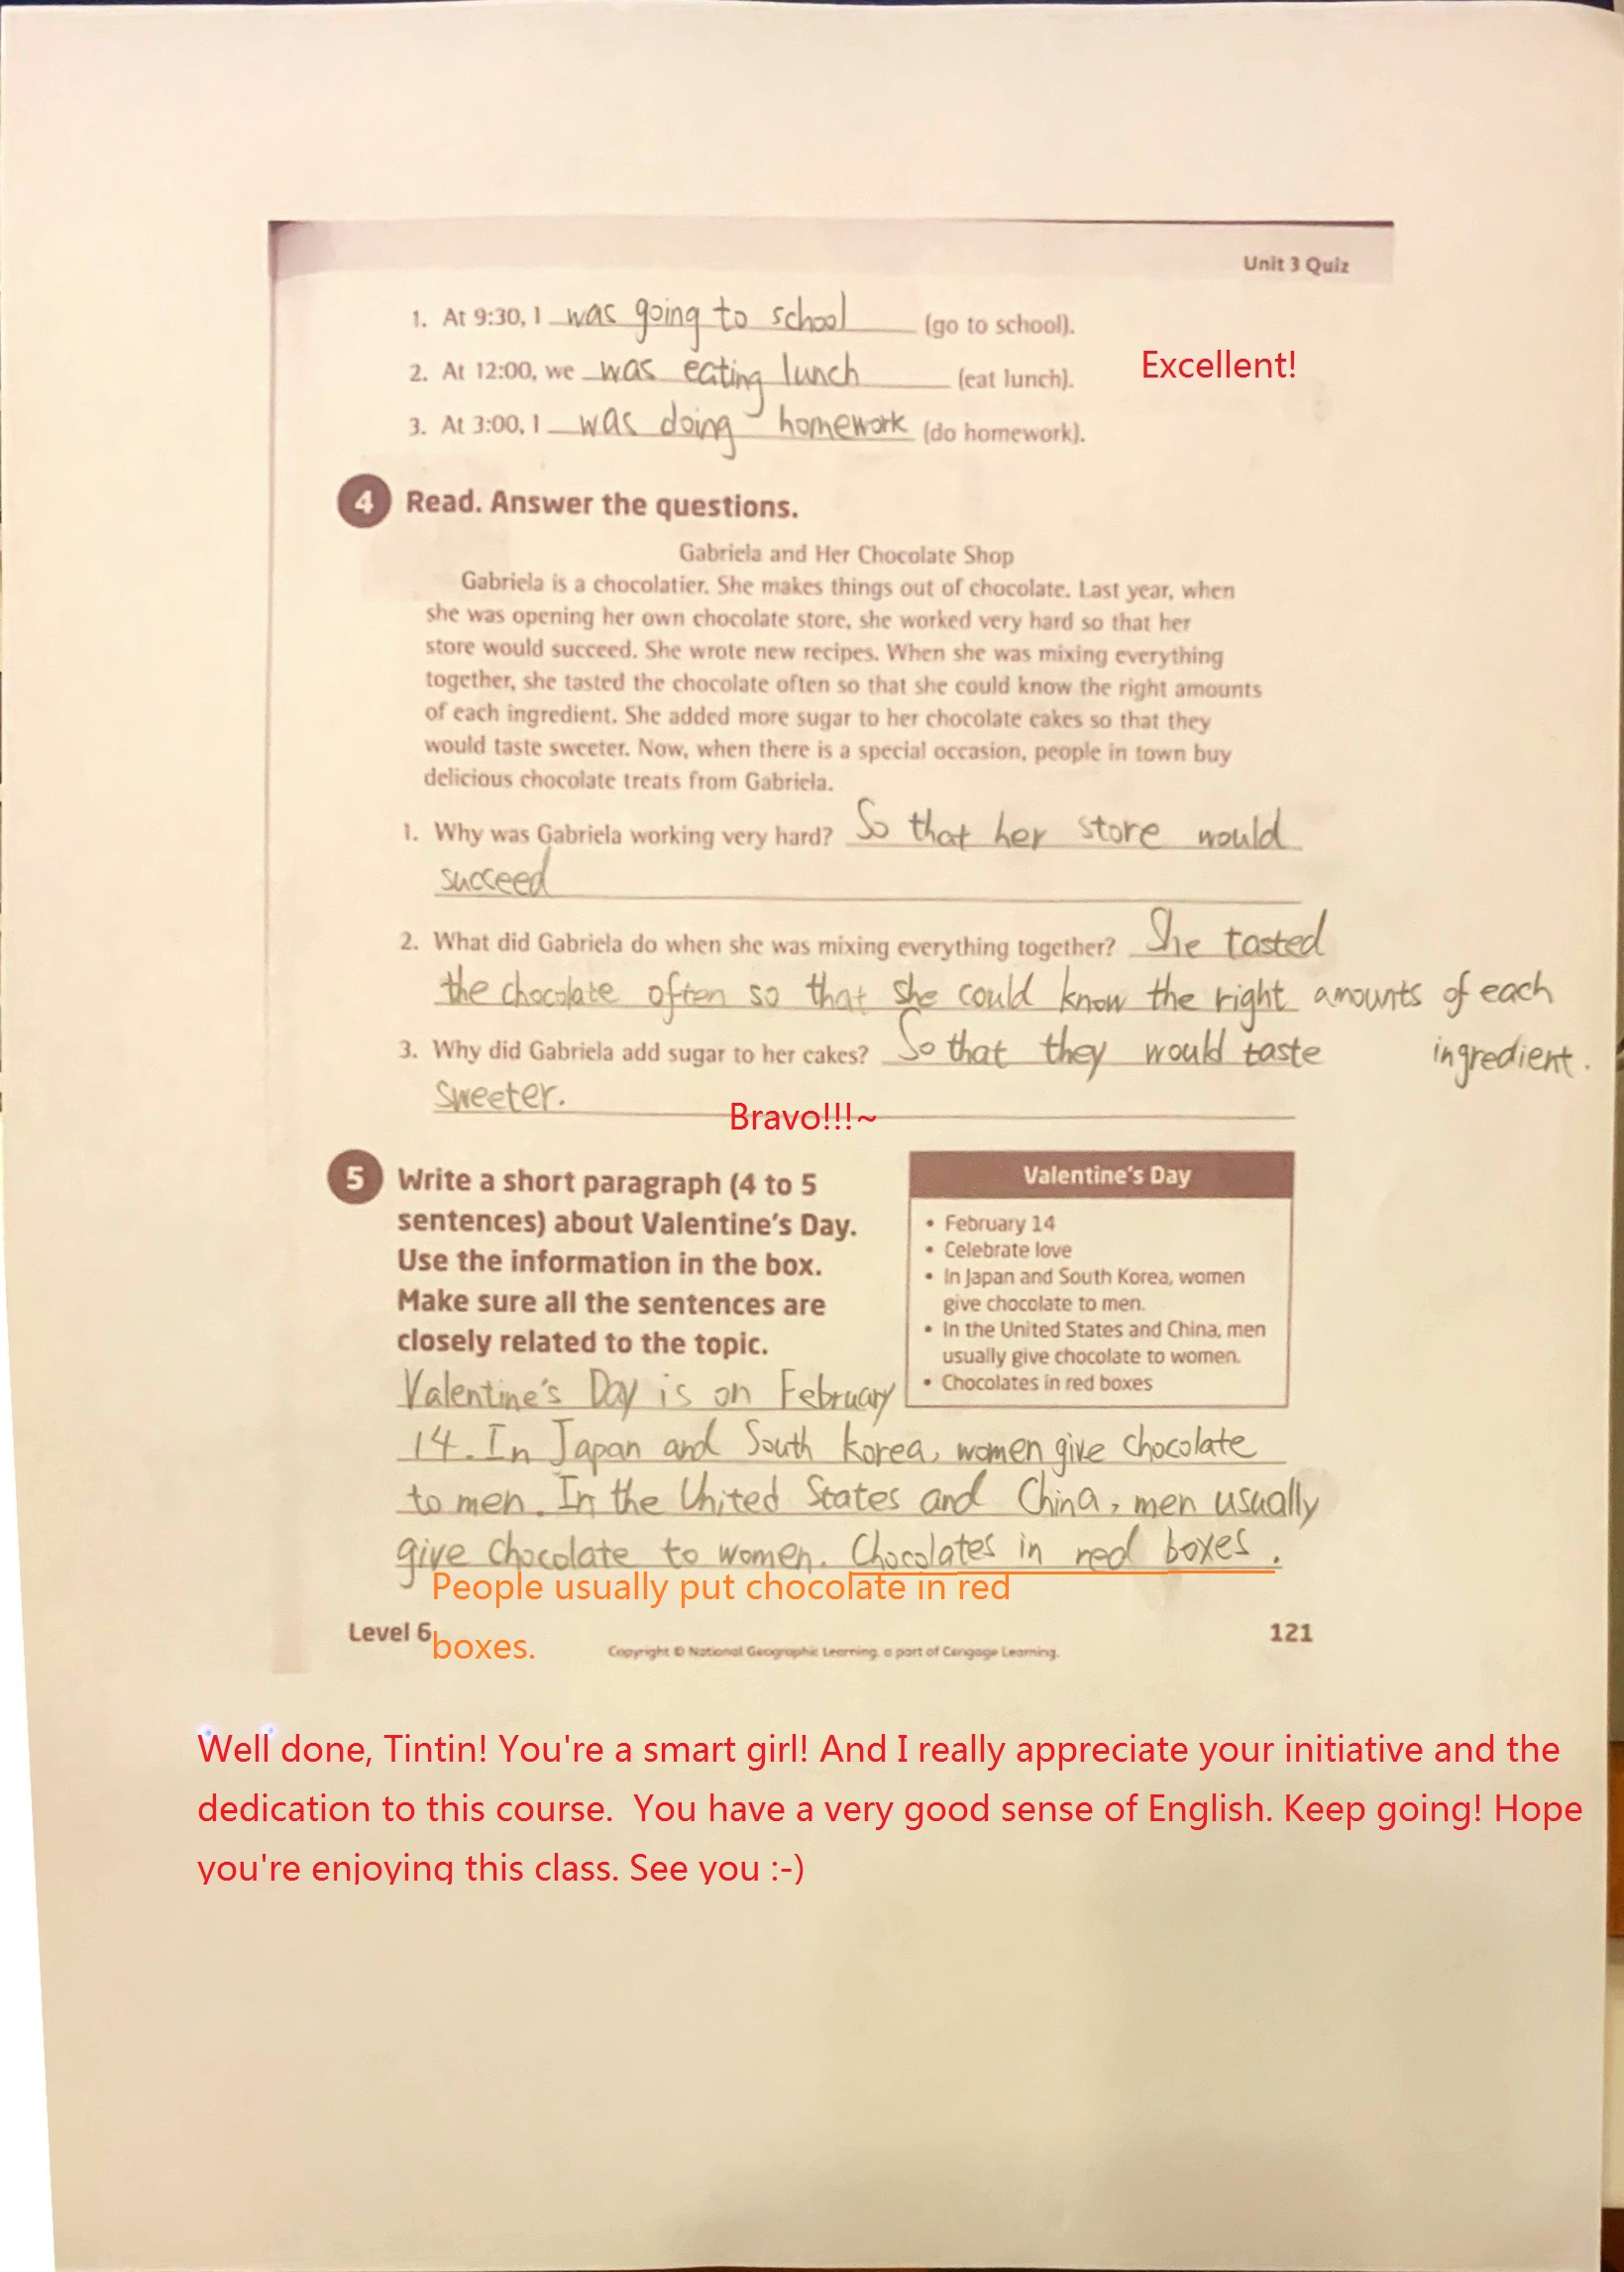 Unit 3 Quiz
1. At 9:30, I was going to school (go to school).
2. At 12:00, we was eating lunch (eat lunch).
Excellent!
3. At 3:00, I was doing homework (do homework).
4 Read. Answer the questions.
Gabriela and Her Chocolate Shop
Gabriela is a chocolatier. She makes things out of chocolate. Last year, when
she was opening her own chocolate store, she worked very hard so that her
store would succeed. She wrote new recipes. When she was mixing everything
together, she tasted the chocolate often so that she could know the right amounts
of each ingredient. She added more sugar to her chocolate cakes so that they
would taste sweeter. Now, when there is a special occasion, people in town buy
delicious chocolate treats from Gabriela.
1. Why was Gabriela working very hard? So that her store would
succeed
2. What did Gabriela do when she was mixing everything together? She tasted
the chocolate often so that she could know the right amounts of each
ingredient.
3. Why did Gabriela add sugar to her cakes? So that they would taste
sweeter.
Bravo!!!~
5 Write a short paragraph (4 to 5
sentences) about Valentine's Day.
Use the information in the box.
Make sure all the sentences are
closely related to the topic.
Valentine's Day
• February 14
• Celebrate love
• In Japan and South Korea, women
give chocolate to men.
• In the United States and China, men
usually give chocolate to women.
• Chocolates in red boxes
Valentine's Day is on February
14. In Japan and South korea, women give chocolate
to men. In the United States and China, men usually
give chocolate to women. Chocolates in red boxes.
People usually put chocolate in red
boxes.
Level 6
Copyright © National Geographic Learning, a part of Cengage Learning.
121
Well done, Tintin! You're a smart girl! And I really appreciate your initiative and the
dedication to this course. You have a very good sense of English. Keep going! Hope
you're enjoying this class. See you :-)